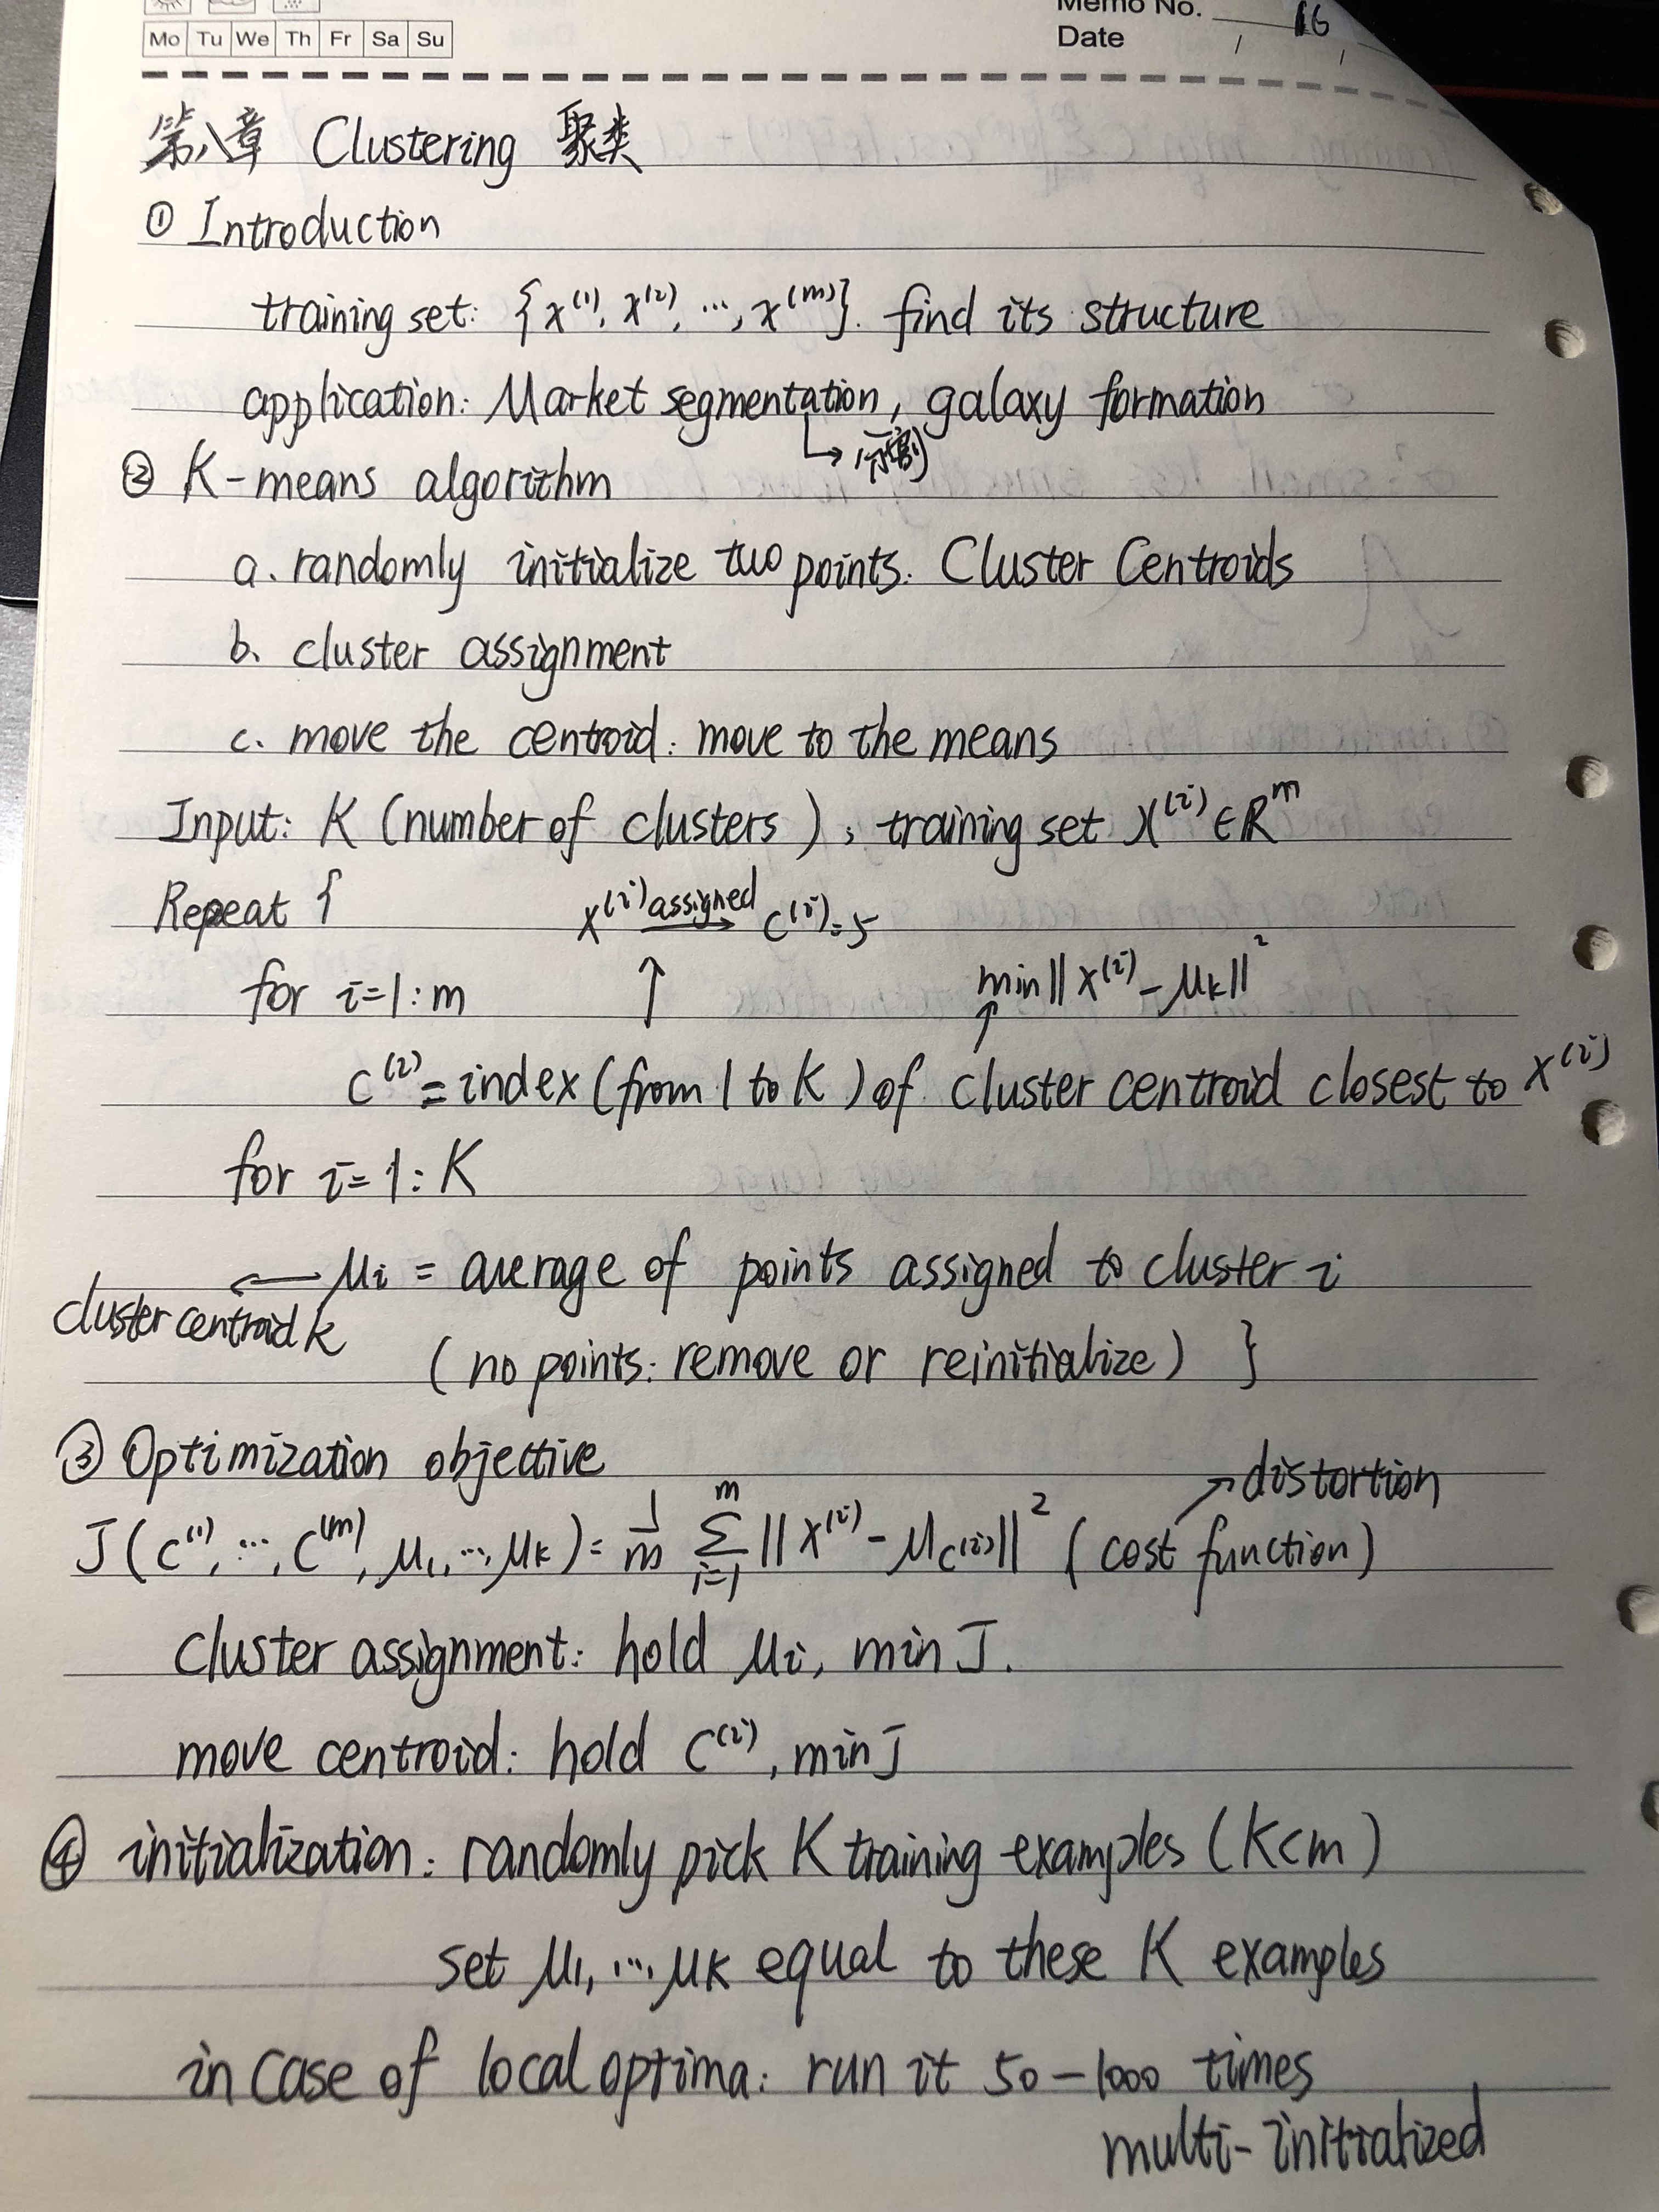 Memo No. 16
Mo Tu We Th Fr Sa Su
Date / /
第八章 Clustering 聚类
① Introduction
training set: {x⁽¹⁾, x⁽²⁾, ..., x⁽ᵐ⁾}. find its structure
application: Market segmentation, galaxy formation
↳ 分割
② K-means algorithm
a. randomly initialize two points: Cluster Centroids
b. cluster assignment
c. move the centroid: move to the means
Input: K (number of clusters); training set X⁽ⁱ⁾ ∈ ℝᵐ
Repeat {
x⁽ⁱ⁾ assigned → c⁽ⁱ⁾=5
for i=1:m ↑ min||x⁽ⁱ⁾-μk||²
c⁽ⁱ⁾ = index (from 1 to K) of cluster centroid closest to x⁽ⁱ⁾
for i=1:K
← μi = average of points assigned to cluster i
cluster centroid k
(no points: remove or reinitialize) }
③ Optimization objective
→ distortion
J(c⁽¹⁾, ..., c⁽ᵐ⁾, μ1, ..., μk) = 1/m Σ_{i=1}^{m} ||x⁽ⁱ⁾ - μc⁽ⁱ⁾||² (cost function)
cluster assignment: hold μi, min J.
move centroid: hold c⁽ⁱ⁾, min J
④ initialization: randomly pick K training examples (K<m)
set μ1, ... μK equal to these K examples
in case of local optima: run it 50-1000 times
multi-initialized